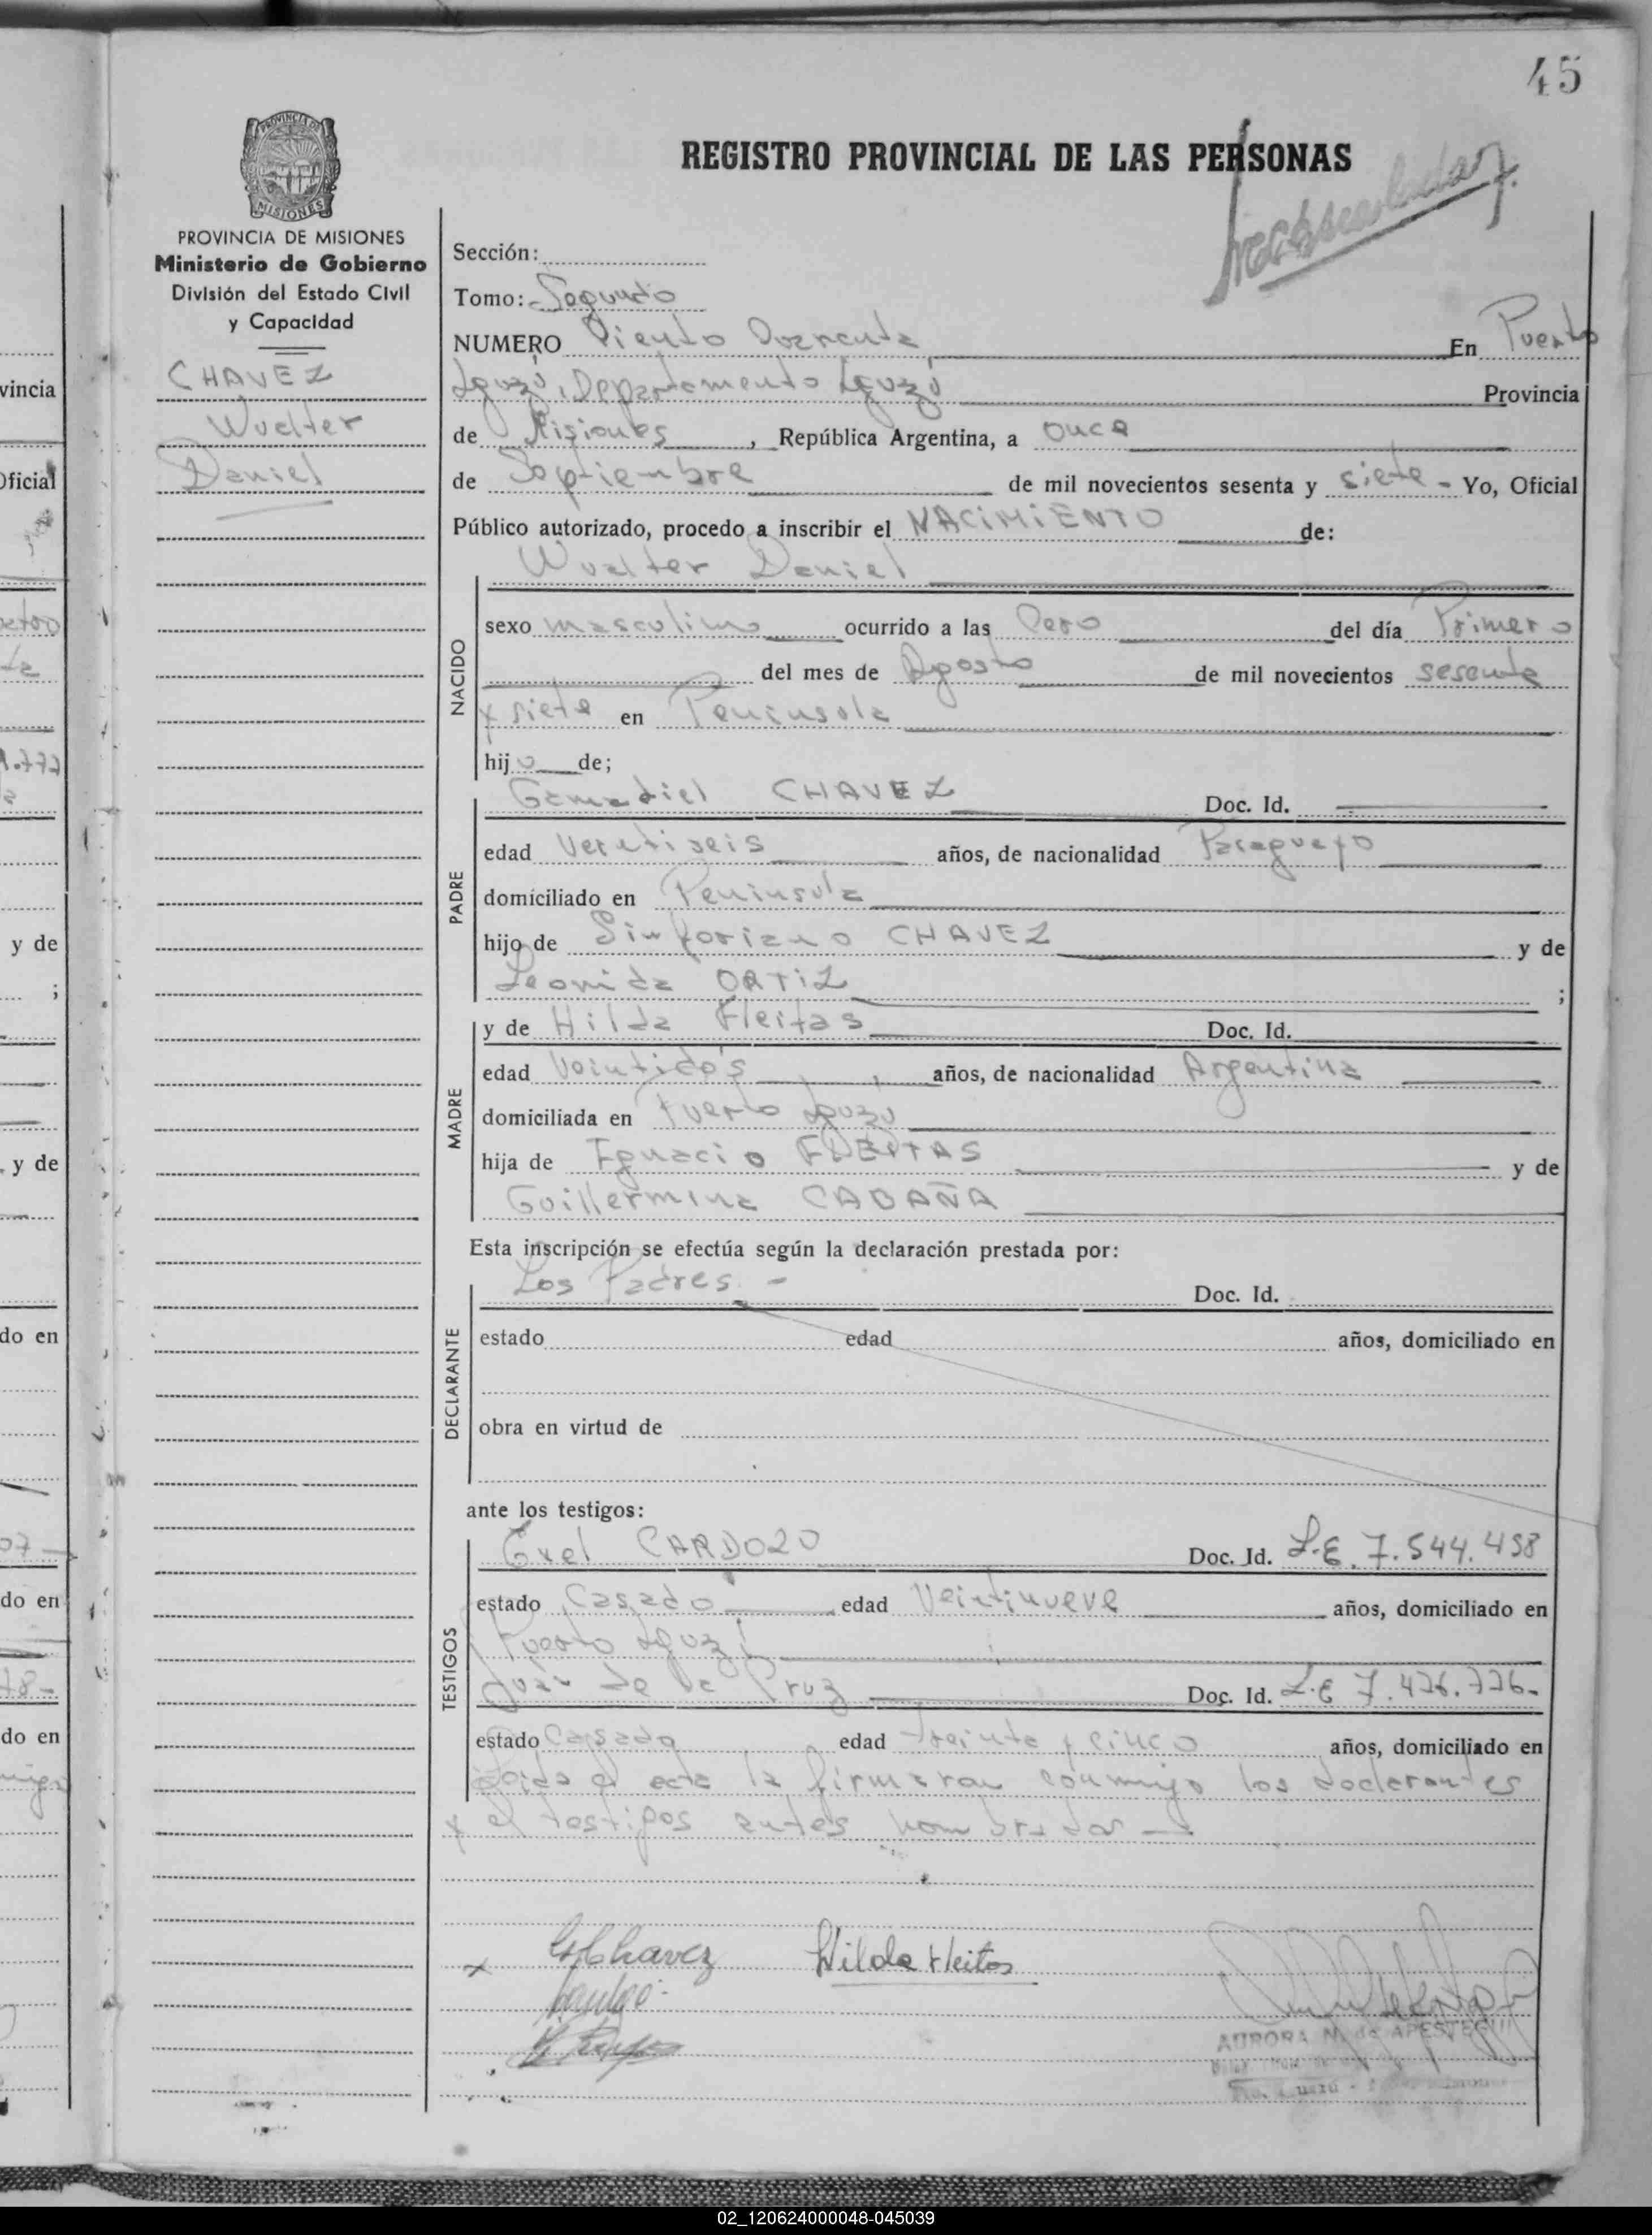 45
REGISTRO PROVINCIAL DE LAS PERSONAS
PROVINCIA DE MISIONES
Ministerio de Gobierno
División del Estado Civil
y Capacidad
CHAVEZ
Wualter
Daniel
Sección:
Tomo: Segundo
NUMERO Ciento Cuarenta En Puerto
Iguazú, Departamento Iguazú Provincia
de Misiones, República Argentina, a once
de Septiembre de mil novecientos sesenta y siete - Yo, Oficial
Público autorizado, procedo a inscribir el NACIMIENTO de:
Wualter Daniel
NACIDO
sexo masculino ocurrido a las Cero del día Primero
del mes de Agosto de mil novecientos sesenta
y siete en Peninsula
hijo de;
PADRE
Gamadiel CHAVEZ Doc. Id.
edad Veintiseis años, de nacionalidad Paraguayo
domiciliado en Peninsula
hijo de Sinforiano CHAVEZ y de
Leonida ORTIZ ;
MADRE
y de Hilda Fleitas Doc. Id.
edad Veintidós años, de nacionalidad Argentina
domiciliada en Puerto Iguazú
hija de Ignacio FLEITAS y de
Guillermina CABAÑA
Esta inscripción se efectúa según la declaración prestada por:
DECLARANTE
Los Padres - Doc. Id.
estado edad años, domiciliado en
obra en virtud de
ante los testigos:
TESTIGOS
Exel CARDOZO Doc. Id. L.E. 7.544.498
estado Casado edad Veintinueve años, domiciliado en
Puerto Iguazú
Juan de la Cruz Doc. Id. L.E 7.476.776-
estado Casado edad treinta y cinco años, domiciliado en
Leida el acta la firmaran conmigo los declarantes
y el testigos antes nombrados
x Chavez Hilda Fleitas
AURORA N. de APESTEGUI
02_120624000048-045039